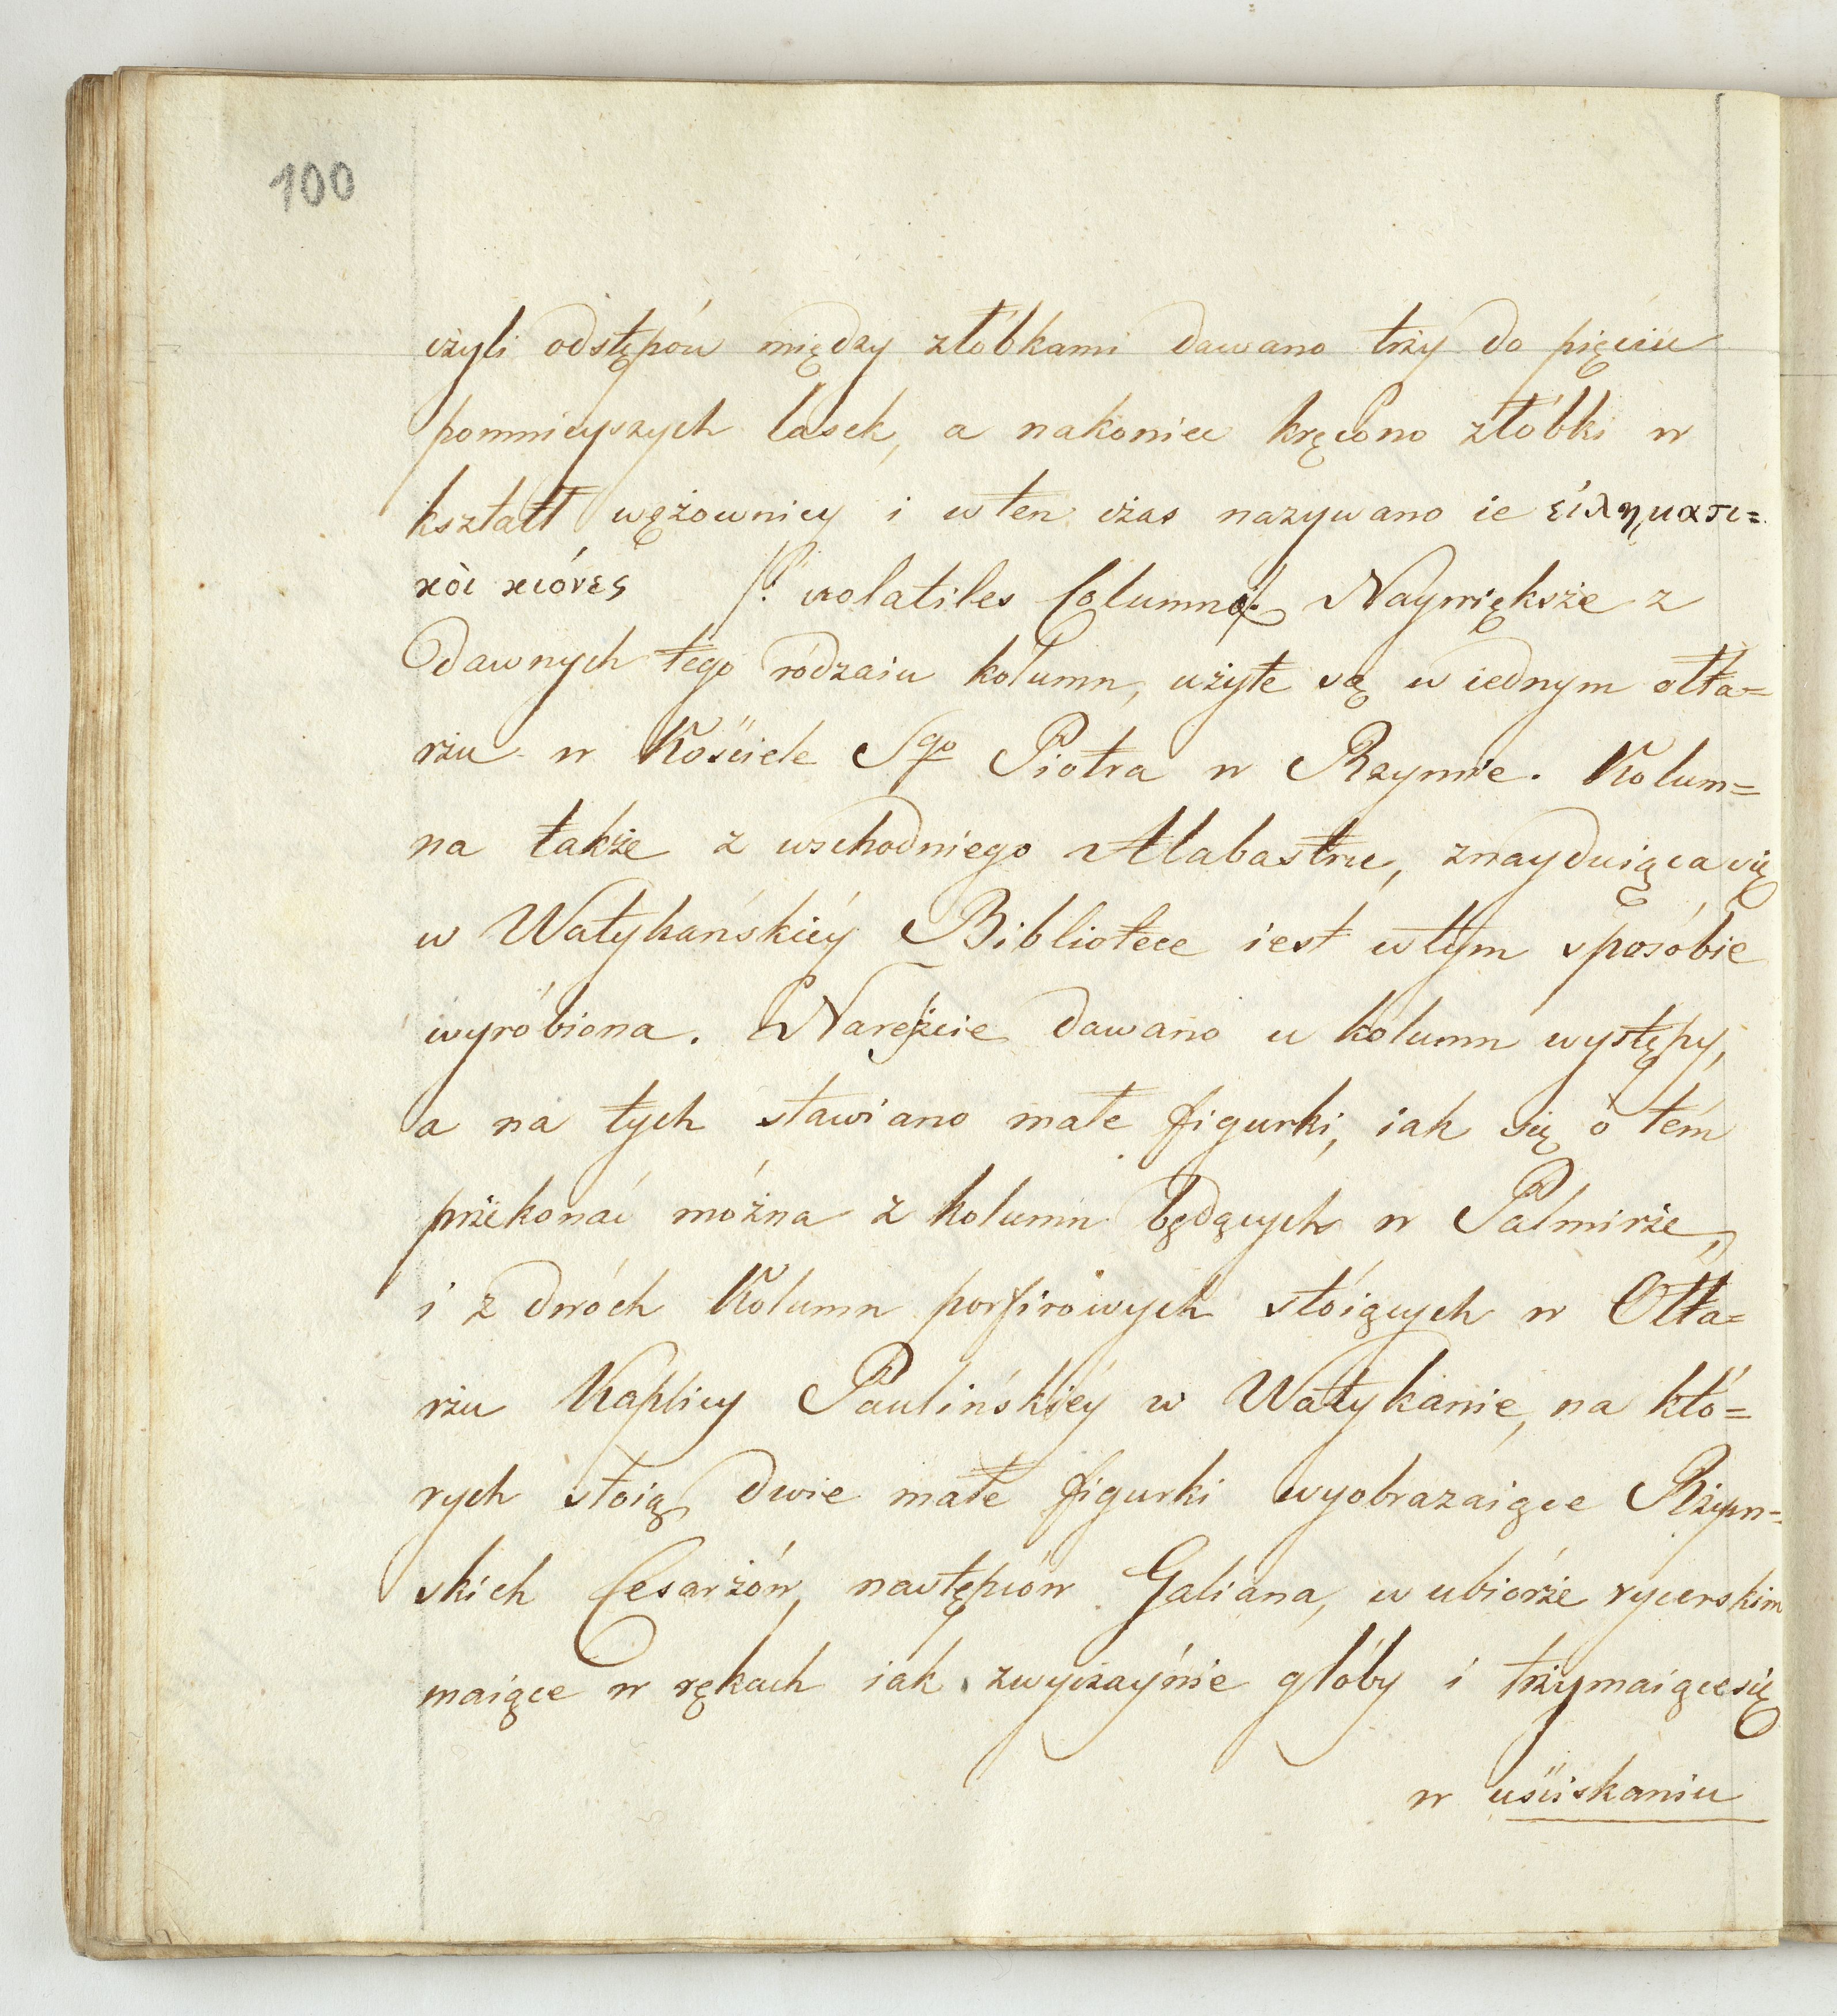 100
czyli odstępów między złóbkami dawano trży do pięciu
pomnieyszych lasek, a nakoniec kręcono złóbki w
kształt wężownicy i wten czas nazywano ie εἰληματι=
κὸι κιόνες /: volatiles Columnæ :/ Naywiększe z
dawnych tego ródzaiu kolumn, użyte są w iednym ołta=
rżu w Kościele Sgo Piotra w Rzymie. Kolum=
na także z wschodniego Alabastru, znayduiąca się
w Watykańskiéy Bibliotece iest wtym sposóbie
wyróbiona. Nareżcie dawano u kolumn występy,
a na tych stawiano małe figurki, iak się o tém
przekonać móżna z kolumn będących w Palmirże,
i z dwóch Kolumn porfirowych stóiących w Ołta=
rżu Kaplicy Paulińskiéy w Watykanie, na któ=
rych stoią dwie małe figurki wyobrazaiące Rżym=
skich Cesarżów, następców Galiana, w ubiórże rycerskim
maiące w rękach iak zwyczayńie glóby i trżymaiące się
w uściskaniu